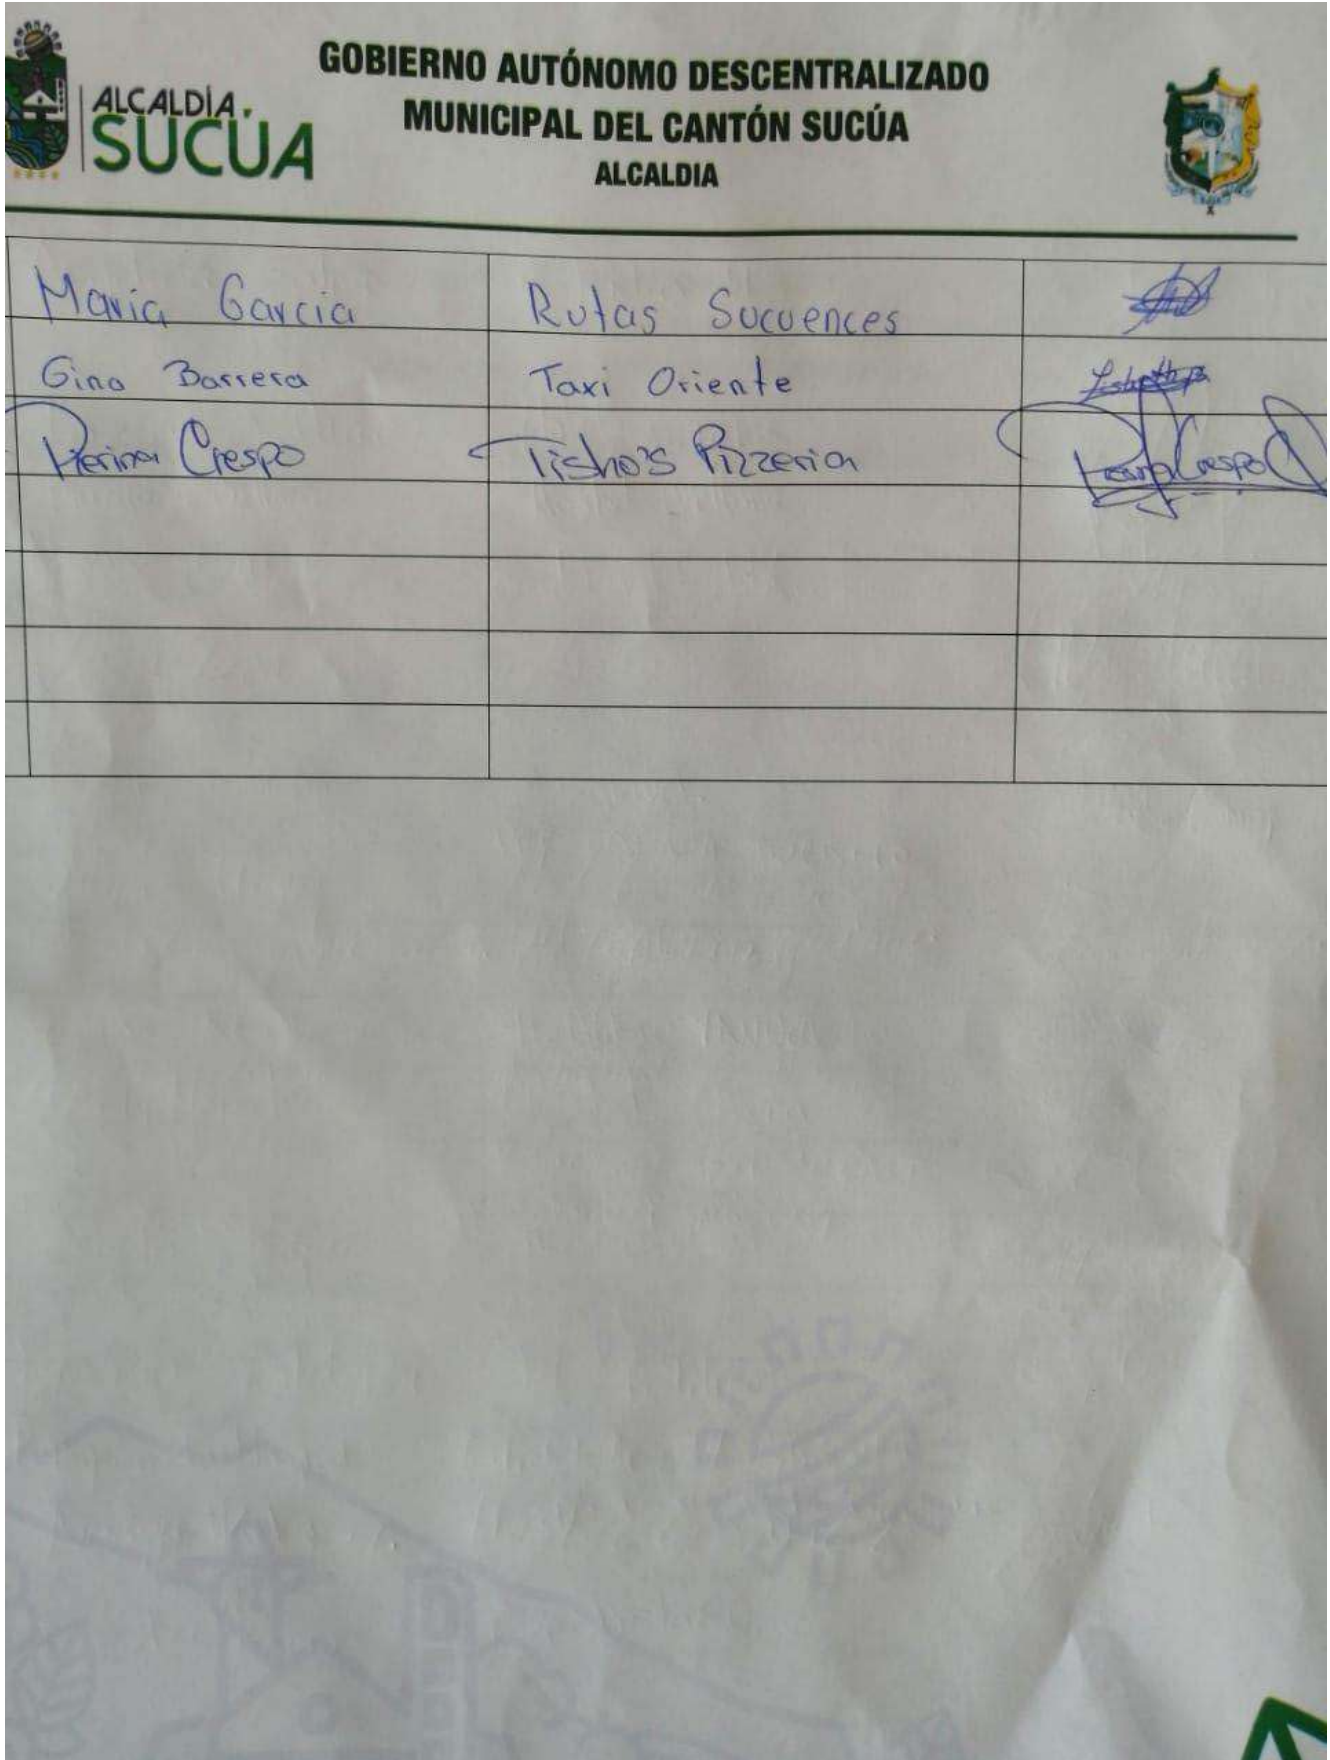 ALCALDÍA
SUCÚA
GOBIERNO AUTÓNOMO DESCENTRALIZADO
MUNICIPAL DEL CANTÓN SUCÚA
ALCALDIA
Maria Garcia Rutas Sucuences
Gino Barrera Taxi Oriente
Pierina Crespo Tisho's Pizzeria Crespo